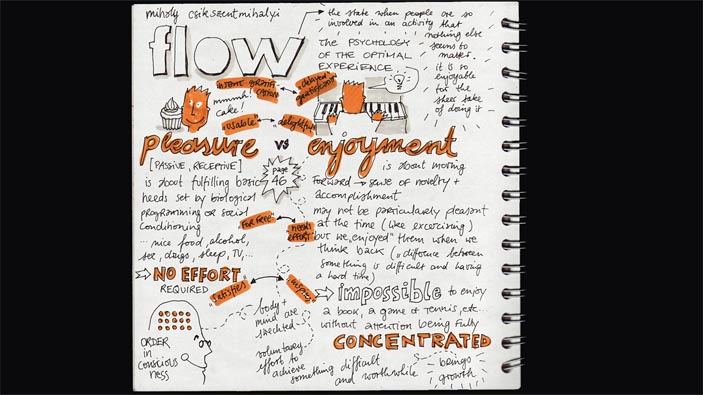 mihály csikszentmihalyi
flow
the state when people are so
involved in an activity that
nothing else
seems to
matter.
it is so
enjoyable
for the
sheer sake
of doing it
THE PSYCHOLOGY
OF THE OPTIMAL
EXPERIENCE
delayed
gratification
mmmh!
cake!
"usable"
"delightful"
pleasure vs enjoyment
[PASSIVE, RECEPTIVE]
is about fulfilling basic
needs set by biological
programming or social
conditioning
... nice food, alcohol,
sex, drugs, sleep, TV,...
NO EFFORT
REQUIRED
page
46
is about moving
forward → sense of novelty +
accomplishment
may not be particularly pleasant
at the time (like excercising)
but we "enjoyed" them when we
think back (difference between
something is difficult and having
a hard time)
"FOR FREE"
needs
EFFORT
"satisfies"
impossible to enjoy
a book, a game of tennis, etc...
without attention being fully
CONCENTRATED
ORDER
in
conscious
ness
body +
mind are
voluntary
effort to
achieve
something difficult
and worthwhile
brings
growth